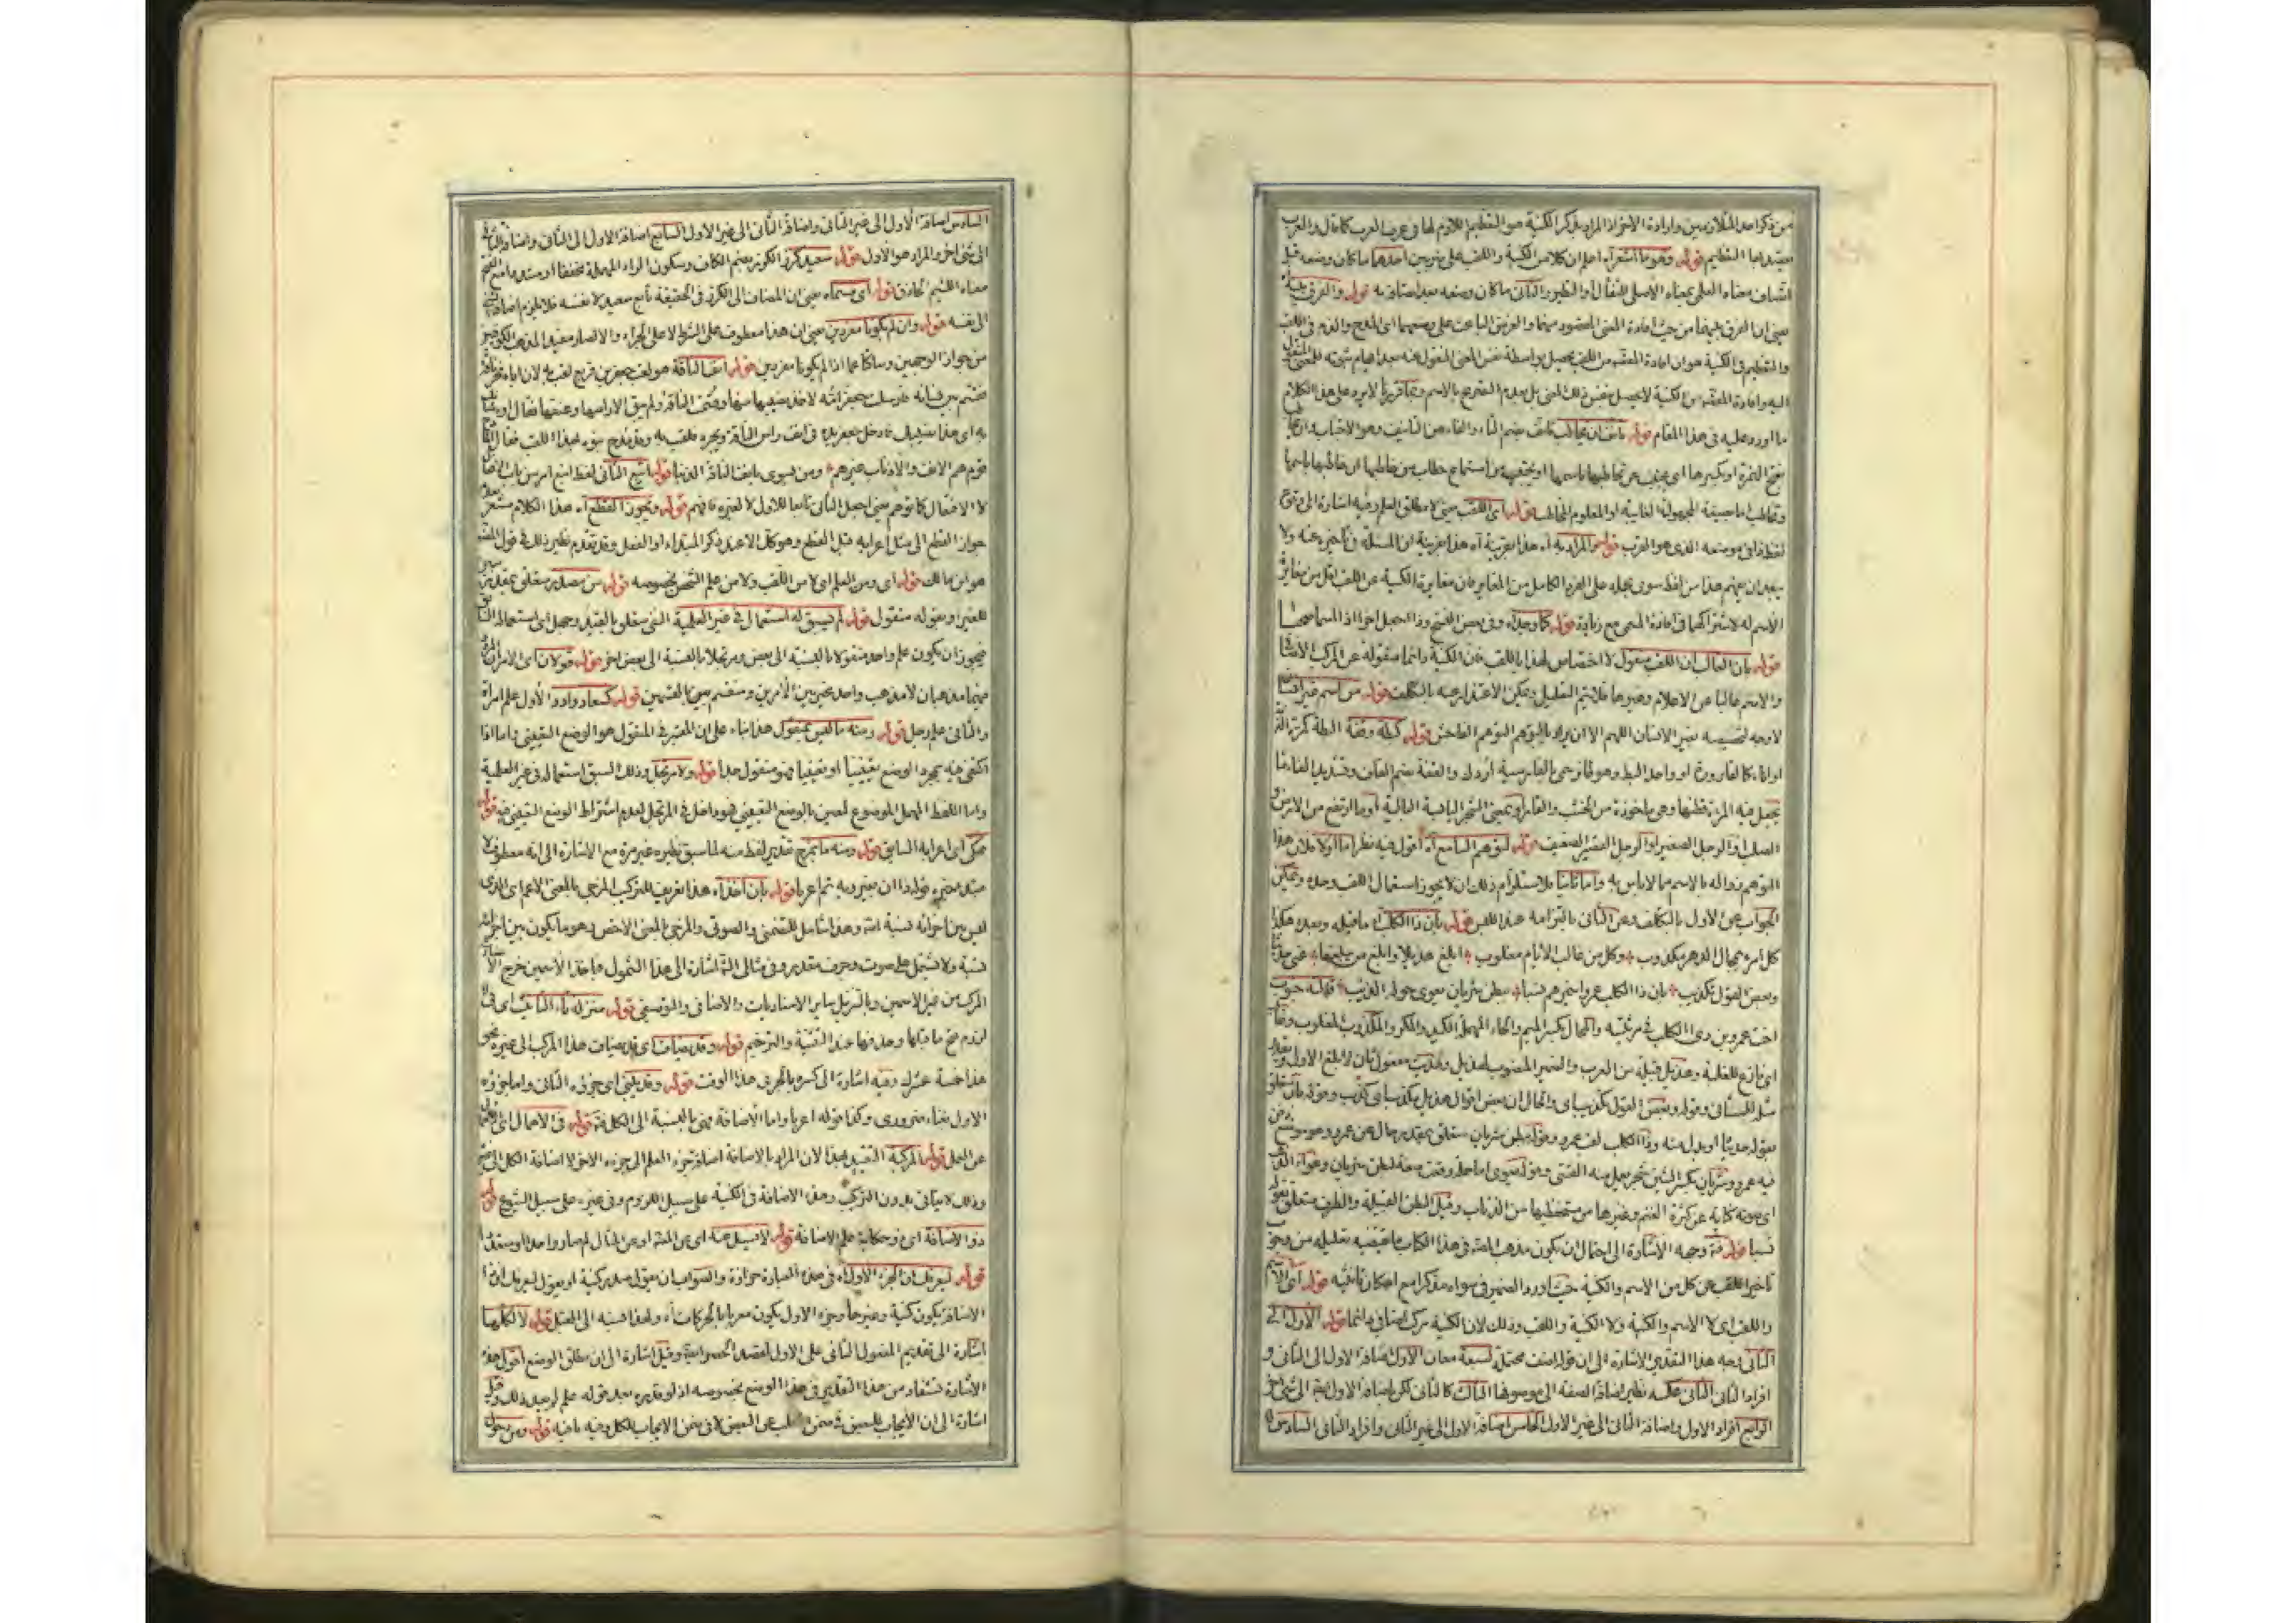 من ذكر احد المتلازمين وارادة الاخر اذ المراد بذكر الكنية هو التعظيم اللازم لها في عرف العرب كما قال والعرب
يقصد بها التعظيم قوله وهو ما اشعر آه اعلم ان كلا من الكنية واللقب على ضربين احدهما ما كان وضعه قبل
اتصاف معناه العلمي بمعناه الاصلي للتفأل او التطير والثاني ما كان وضعه بعد اتصافه به قوله والفرق بينه
يعني ان الفرق بينهما من حيث افادة المعنى المقصود منهما والغرض الباعث على وضعهما اى المدح والذم في اللقب
والتعظيم في الكنية هو ان افادة المقصود من اللقب يحصل بواسطة نفس المعنى المنقول عنه
اليه وافادة المقصود من الكنية لا يحصل بنفس ذلك المعنى بل بعدم التصريح بالاسم وبما قررنا لا يرد على هذا الكلام
ما اورد عليه في هذا المقام قوله تأنف ان تخاطب تأنف بضم التاء والفاء من التأنيف وهو الاجتناب وان
بفتح الهمزة او بكسرها اى يجتنب عن تخاطبها باسمها او يجتنب من استماع خطاب من خاطبها ان خاطبها باسمها
وتخاطب اما بصيغة المجهولة الغايبة او المعلوم المخاطب قوله اى اللقب يعني لا مطلق العلم وفيه اشارة الى وقوع
لفظة في موضعه الذى هو القرب قوله والمراد به آه هذا بقرينة آه هذا قرينة ان المسئلة في تأخيره عنه ولا
يبعد ان يفهم هذا من لفظ سوى بحمله على الفرد الكامل من المغاير فان مغايرة الكنية عن اللقب اقل من مغايرة
الاسم له لاشتراكهما في افادة المعنى مع زيادة قوله كما وجد آه وفي بعض النسخ وذا اجعل اخرا اذا اسما صحبا
قوله بان الغالب ان اللقب منقول لا اختصاص لهذا باللقب فان الكنية دائما منقولة عن المركب الاضافي
والاسم غالبا عن الاعلام وغيرها فلا يتم التعليل ويمكن الاعتذار عنه بالتكلف قوله من اسم غير انسان
لا وجه لتخصيصه بغير الانسان اللهم الا ان يراد بالتوهم التوهم الفاحش قوله كبطة وقفة البطة
او اناء كالقارورة او واحد البط وهو طائر يسمى بالفارسية اردك والقفة بضم القاف وتشديد الفاء ما
يجعل فيه المرئة قطنها وهي ماخوذة من الخشب والقار او بمعنى الشجر اليابسة البالية او ما ارتفع من الارض
الصلب او الرجل الصغير او الرجل القصير الضعيف قوله لتوهم السامع آه اقول فيه نظر اما اولا فلان هذا
التوهم زواله بالاسم مما لا باس به واما ثانيا فلاستلزام ذلك ان لا يجوز استعمال اللقب وحده ويمكن
الجواب عن الاول بالتكلف وعن الثاني بالتزامه عند اللبس قوله بان ذا الكلب آه ما قبله وبعده هكذا
كل امرء بمحال الدهر مكذوب وكل من غالب الايام مغلوب ابلغ هذيلا وابلغ من يبلغها عني حديثا
وبعض القول تكذيب بان ذا الكلب عمروا خيرهم نسبا ببطن شريان يعوى حوله الذيب قالته جنوب
اخت عمرو بن ذى الكلب في مرثيته والمحال بكسر الميم والحاء المهملة الكيد والمكر والمكذوب المغلوب وغالب
اى نازع للغلبة وهذيل قبيلة من العرب والضمير المنصوب لهذيل وحديث مفعول ثان لابلغ الاول
مثله للثاني وقوله وبعض القول تكذيب اى والحال ان بعض اقوال هذيل تكذيب اى كذب وقوله بان متعلق
بقوله حديثا او بدل منه وذا الكلب لقب عمرو وقوله ببطن شريان متعلق بمقدر حال عن عمرو وهو موضع
فيه عمرو وشريان بكسر الشين شجر يعمل منه القسى وقوله يعوى اما حال او صفة لبطن شريان وعواء الذئب
اى صوته كناية عن كثرة الغنم وغيرها من متحفظيها من الذئاب وقيل البطن القبيلة والظرف متعلق بقوله
نسبا قوله فمة وجهه الاشارة الى احتمال ان يكون مذهب المص في هذا الكتاب ما يقتضيه تعليله من وجوب
تاخير اللقب عن كل من الاسم والكنية حيث اورد الضمير في سواه مذكرا مع امكان تانيثه قوله اى الاسم
واللقب اى لا الاسم والكنية ولا الكنية واللقب وذلك لان الكنية مركب اضافي دائما قوله الاول الى
الثاني وجه هذا التقدير الاشارة الى ان قوله اضف محتمل لسبعة معان الاول اضافة الاول الى الثاني و
افراد الثاني الثاني عكسه نظير اضافة الصفة الى موصوفها الثالث كالثاني لكن اضافة الاول فيه الى شئ اخر
الرابع افراد الاول واضافة الثاني الى غير الاول الخامس اضافة الاول الى غير الثاني وافراد الثاني السادس
السادس اضافة الاول الى غير الثاني واضافة الثاني الى غير الاول السابع اضافة الاول الى الثاني واضافة الثاني
الى شئ اخر والمراد هو الاول قوله سعيد كرز الكرز بضم الكاف وسكون الراء المهملة مخففا او مشددا مع الفتح
معناه اللئيم الحاذق قوله اى مسماه يعني ان المضاف الى الكرز في الحقيقة تابع سعيد لا نفسه فلا يلزم اضافة الشئ
الى نفسه قوله وان لم يكونا مفردين يعني ان هذا معطوف على الشرط لا على الجزاء والا لصار مقيدا لمذهب الكوفيين
من جواز الوجهين وساكتا عما اذا لم يكونا مفردين قوله انف الناقة هو لقب جعفر بن قريع لقب به لان اباه نحر ناقة
فقسم بين نسائه فارسلت جعفرا امه لاخذ نصيبها منها وقسمت الناقة ولم يبق الا راسها وعنقها فقال ابوه
به اى هذا نصيبك فادخل جعفر يده في انف راس الناقة ويجره فلقب به وقد مدح بنوه بهذا اللقب فقال
قوم هم الانف والاذناب غيرهم ومن يسوى بانف الناقة الذنبا قوله اتبع الثاني لفظ اتبع امر من باب الافعال
لا الافتعال كما توهم يعني اجعل الثاني تابعا للاول لا لغيره فافهم قوله ويجوز القطع آه هذا الكلام مشعر
جواز القطع الى مثل اعرابه قبل القطع وهو كك الا عند ذكر المبتداء او الفعل وقد تقدم نظير ذلك في قول المصنف
هو ابن مالك قوله اى ومن العلم اى لا من اللقب ولا من علم الشخص بخصوصه قوله من مصدر متعلق بمقدر
للضمير او بقوله منقول قوله لم يسبق له استعمال في غير العلمية النفي متعلق بالقيد وحمل اى استعماله السابق
فيجوز ان يكون علم واحد منقولا بالنسبة الى بعض ومرتجلا بالنسبة الى بعض اخر قوله قولان اى الامران
فيهما مذهبان لا مذهب واحد مخير بين الامرين ومنقسم بين القسمين قوله كسعاد وادد الاول علم امراة
والثاني علم رجل قوله ومنه ما ليس بمنقول هذا بناء على ان المعتبر في المنقول هو الوضع التعييني واما اذا
اكتفى فيه بمجرد الوضع تعيينيا او تعينيا فهو منقول جدا قوله ولا مرتجل وذلك لسبق استعماله في غير العلمية
واما اللفظ المهمل الموضوع لمعين بالوضع التعييني فهو داخل في المرتجل لعدم اشتراط الوضع التعييني فيه قوله
حكى اى اعرابه السابق قوله ومنه ما بمزج تقدير لفظ منه لما سبق نظيره غير مرة مع الاشارة الى انه معطوف لا
مبتدء خبره قوله ذا ان بغير ويه تم اعربا قوله بان اخذ آه هذا تعريف للتركيب المزجى بالمعنى الاعم اى الذى
ليس بين اجزائه نسبة امه وهذا شامل للتضمني والصوتي والمزجى بالمعنى الاخص وهو ما يكون بين اجزائه
نسبة ولا تشتمل على صوت وحرف مقدر وفي مثالي الش اشارة الى هذا الشمول فاخذ الاسمين خرج
المركب من غير الاسمين وبالتنزيل ساير الاسناديات والاضافي والتوصيفي قوله منزلة تاء التانيث اى في
لزوم فتح ما قبلها وحذفها عند التثنية والترخيم قوله وقد يضاف اى قد يضاف هذا المركب الى غيره نحو
هذا خمسة عشرك وفيه اشارة الى كسره بالجر في هذا الوقت قوله وقد يبنى اى جزئه الثاني واما جزئه
الاول فبناءه ضرورى وكذا قوله اعربا واما الاضافة فهي بالنسبة الى الكل فمة قوله في الاهمال
عن العمل قوله المركبة التقييد بهذا لان المراد بالاضافة اضافة جزء العلم الى جزئه الاخر لا اضافة الكل الى شئ
وذلك لا يتاتي بدون التركيب وهذه الاضافة في الكنية على سبيل اللزوم وفي غيره على سبيل الشيوع قوله
ذو الاضافة اى ذو حكاية علم الاضافة قوله لا سبيل عنه اى عن المثنى او عن المثال لم صار واحدا او متعددا
قوله ليعرفك ان الجزء الاول آه في هذه العبارة حزازة والصواب ان يقول بعد ركبية او يقول ليعرفك ان
الاضافة يكون كنية وغيرها وجزء الاول يكون معربا بالحركات آه ولهذا نسبه الى القيل قوله لا لكلها
اشارة الى تقديم المفعول الثاني على الاول لقصد الحصر وقيل اشارة الى ان مطلق الوضع اقول هذه
الاشارة تستفاد من هذا التقدير في هذا الموضع بخصوصه اذ لو قدره بعد قوله علم لم يعد ذلك وقيل
اشارة الى ان الايجاب للبعض في ضمن السلب عن البعض لا في ضمن الايجاب للكل وفيه ما فيه قوله